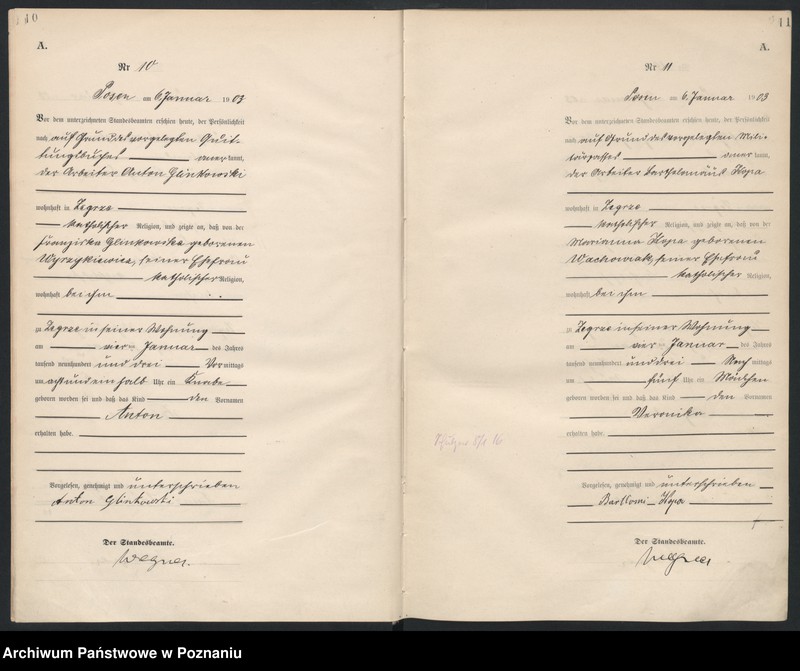 10
A.
Nr 10
Posen am 6 Januar 1903
Vor dem unterzeichneten Standesbeamten erschien heute, der Persönlichkeit
nach auf Grund des vorgelegten Quit-
tungsbuches anerkannt,
der Arbeiter Anton Glinkowski
wohnhaft in Zegrze
katholischer Religion, und zeigte an, daß von der
Franziska Glinkowska geborenen
Wyrzykiewicz, seiner Ehefrau
katholischer Religion,
wohnhaft bei ihm
zu Zegrze in seiner Wohnung
am vier Januar des Jahres
tausend neunhundert und drei Vormittags
um achtundeinhalb Uhr ein Knabe
geboren worden sei und daß das Kind den Vornamen
Anton
erhalten habe.
Vorgelesen, genehmigt und unterschrieben
Anton Glinkowski
Der Standesbeamte.
Wegner.
11
A.
Nr 11
Posen am 6. Januar 1903
Vor dem unterzeichneten Standesbeamten erschien heute, der Persönlichkeit
nach auf Grund des vorgelegten Mili-
tärpasses anerkannt,
der Arbeiter Bartholomäus Kopa
wohnhaft in Zegrze
katholischer Religion, und zeigte an, daß von der
Marianna Kopa geborenen
Wachowiak, seiner Ehefrau
katholischer Religion,
wohnhaft bei ihm
zu Zegrze in seiner Wohnung
am vier Januar des Jahres
tausend neunhundert und drei Nachmittags
um fünf Uhr ein Mädchen
geboren worden sei und daß das Kind den Vornamen
Veronika
erhalten habe.
Vorgelesen, genehmigt und unterschrieben
Kopa
Der Standesbeamte.
Wegner
Archiwum Państwowe w Poznaniu